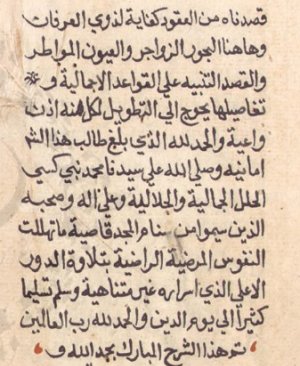 قصدناه من العقود كفاية لذوي العرفات
وهاهنا البحور الزواجر والعيون المواطر
والقصد التنبيه على القواعد الاجمالية و
تفاصيلها يحوج الى التطويل لكل منه اذن
واعية والحمد لله الذي بلغ طالب هذا الشر
امانيه وصلى الله على سيدنا محمد نبي كسي
الحلل الجمالية والجلالية وعلى اله وصحبه
الذين سموا من سنام المجد قاصية ما تهللت
النفوس المرضية الراضية بتلاوة الدور
الاعلى الذي اسراره غير متناهية وسلم تسليما
كثيرا الى يوم الدين والحمد لله رب العالمين
تم هذا الشرح المبارك بحمد الله و